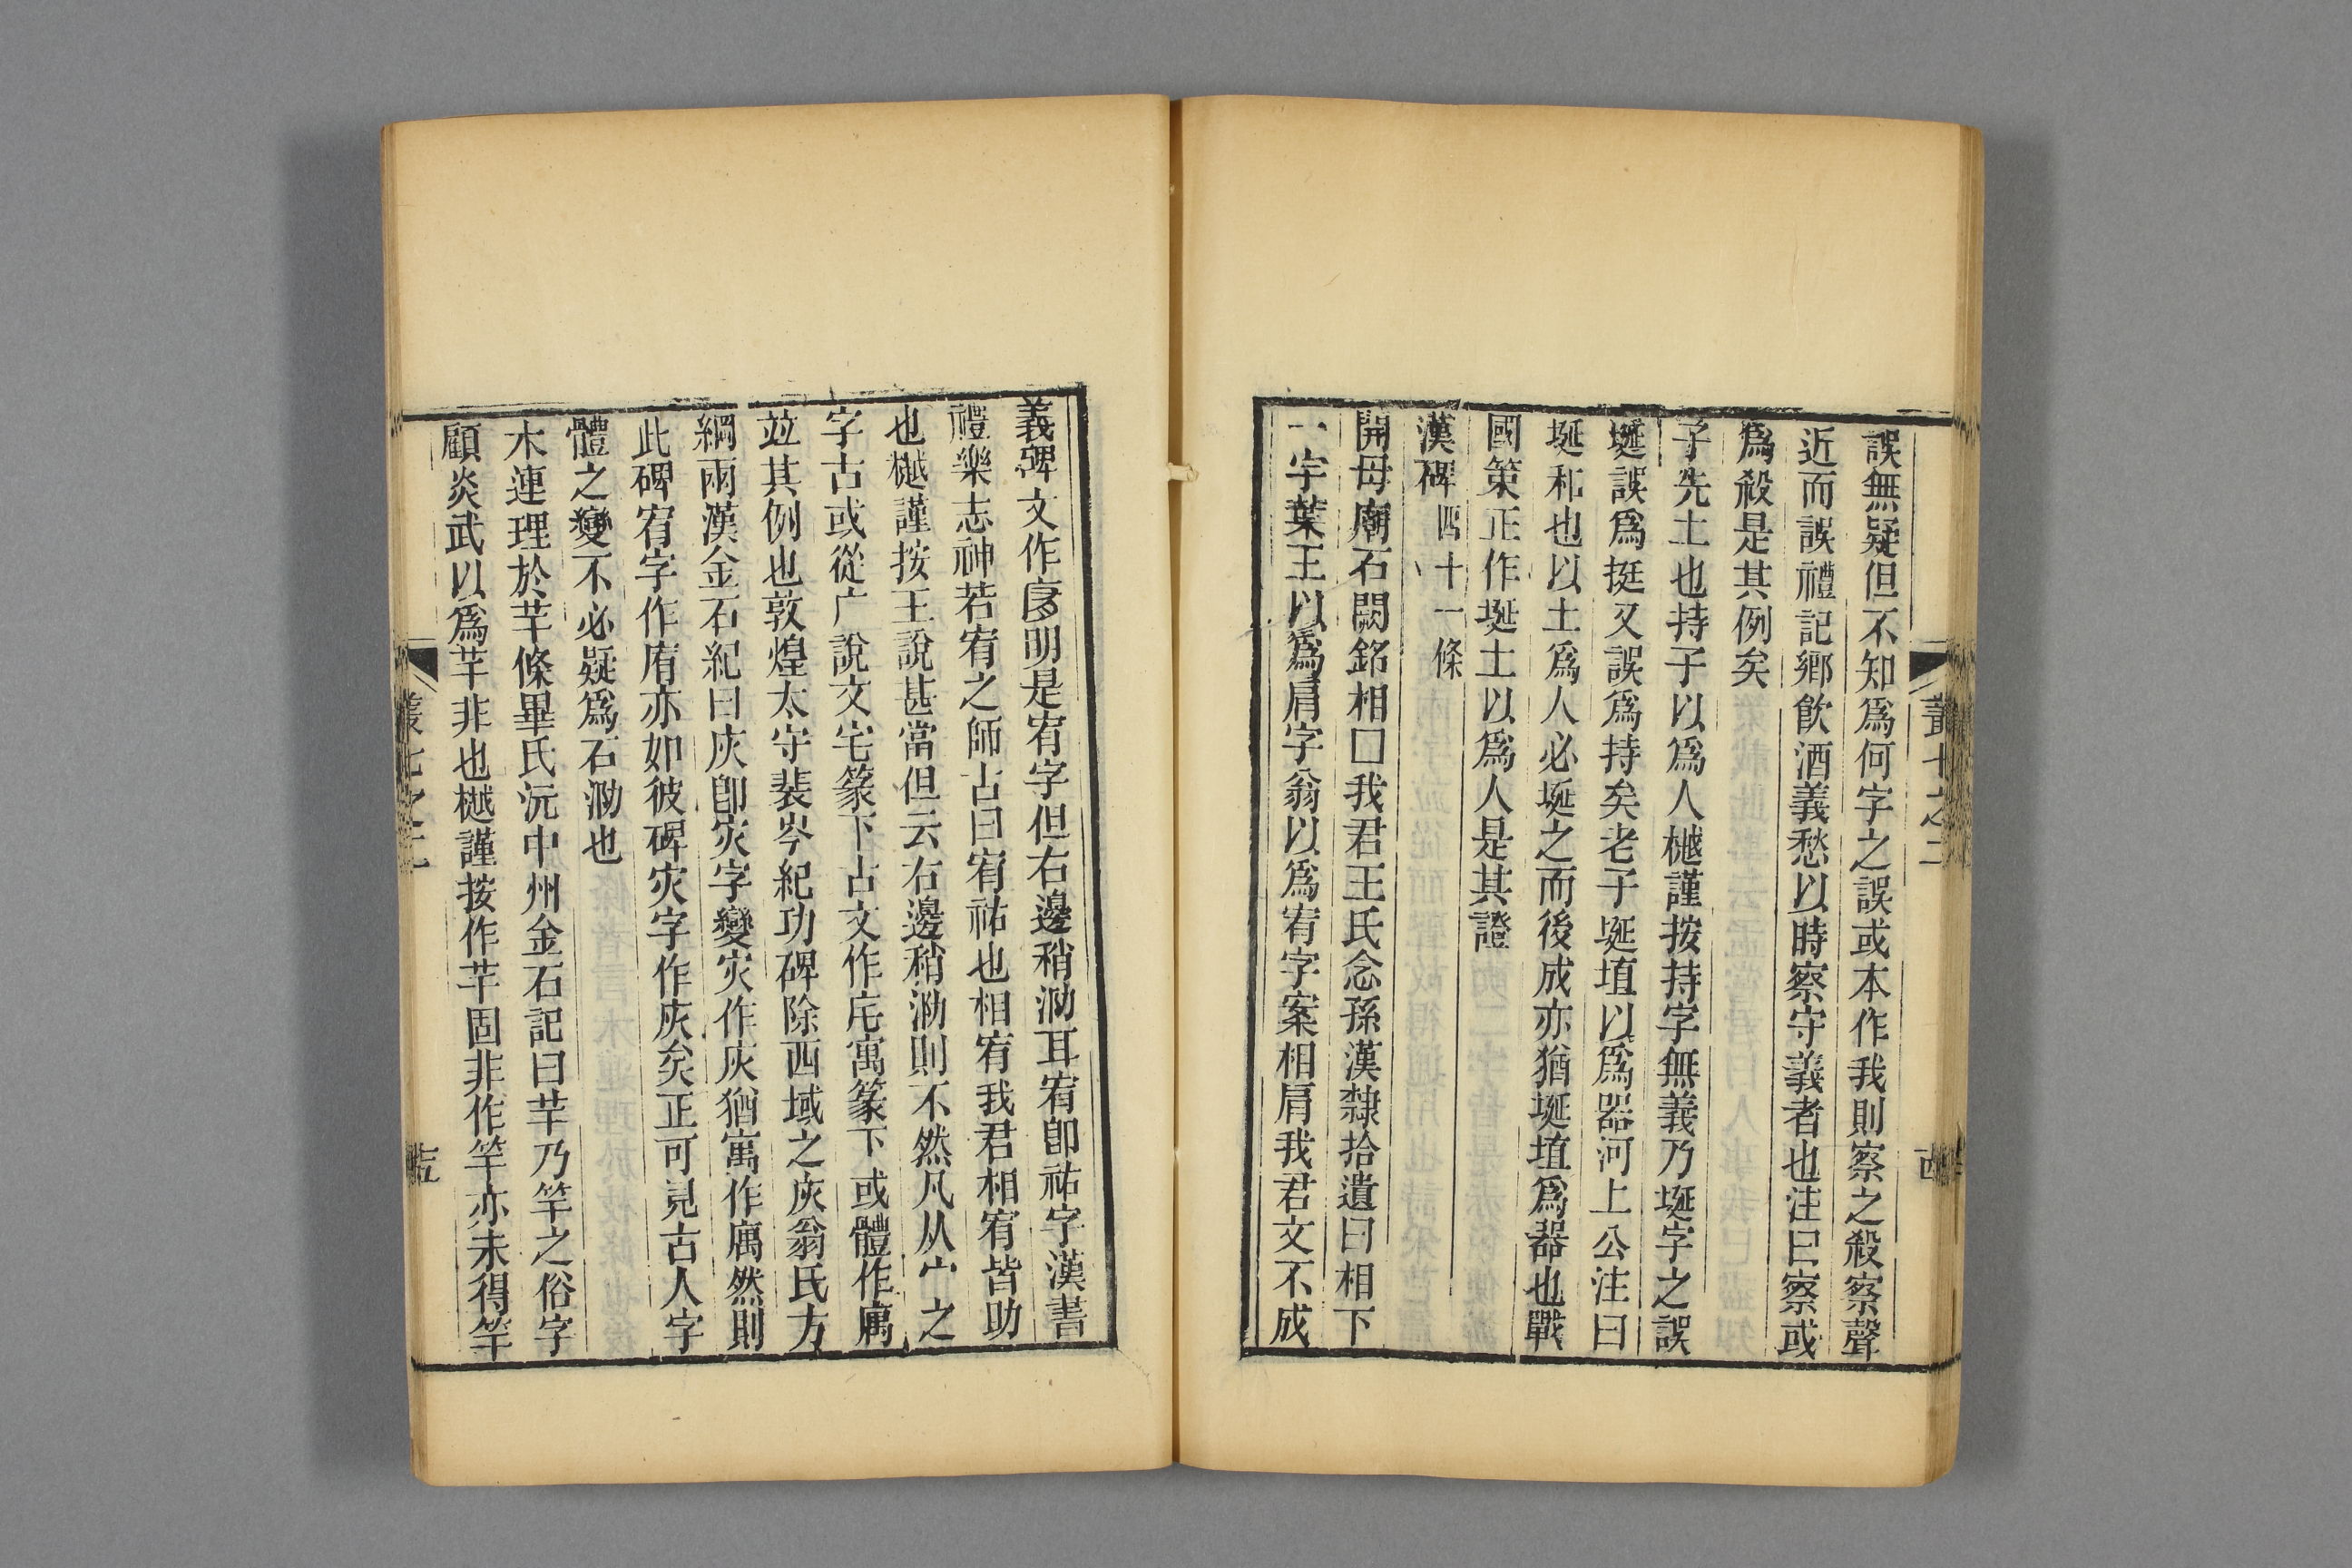 叢七之二
誤無疑但不知爲何字之誤或本作我則察之殺察聲
近而誤禮記鄉飲酒義愁以時察守義者也注曰察或
爲殺是其例矣
子先土也持子以爲人樾謹按持字無義乃埏字之誤
埏誤爲挺又誤爲持矣老子埏埴以爲器河上公注曰
埏和也以土爲人必埏之而後成亦猶埏埴爲器也戰
國策正作埏土以爲人是其證
漢碑四十一條
開母廟石闕銘相囗我君王氏念孫漢隸拾遺曰相下
一字葉王以爲肩字翁以爲宥字案相肩我君文不成
義碑文作㢈明是宥字但右邊稍泐耳宥卽祐字漢書
禮樂志神若宥之師古曰宥祐也相宥我君相宥皆助
也樾謹按王說甚當但云右邊稍泐則不然凡从宀之
字古或從广說文宅篆下古文作㡯寓篆下或體作庽
竝其例也敦煌太守裴岑紀功碑除西域之灰翁氏方
綱兩漢金石紀曰灰卽灾字變灾作灰猶寓作庽然則
此碑宥字作庮亦如彼碑灾字作灰矣正可見古人字
體之變不必疑爲石泐也
木連理於芊條畢氏沅中州金石記曰芊乃竿之俗字
顧炎武以爲芊非也樾謹按作芊固非作竿亦未得竿
叢七之二